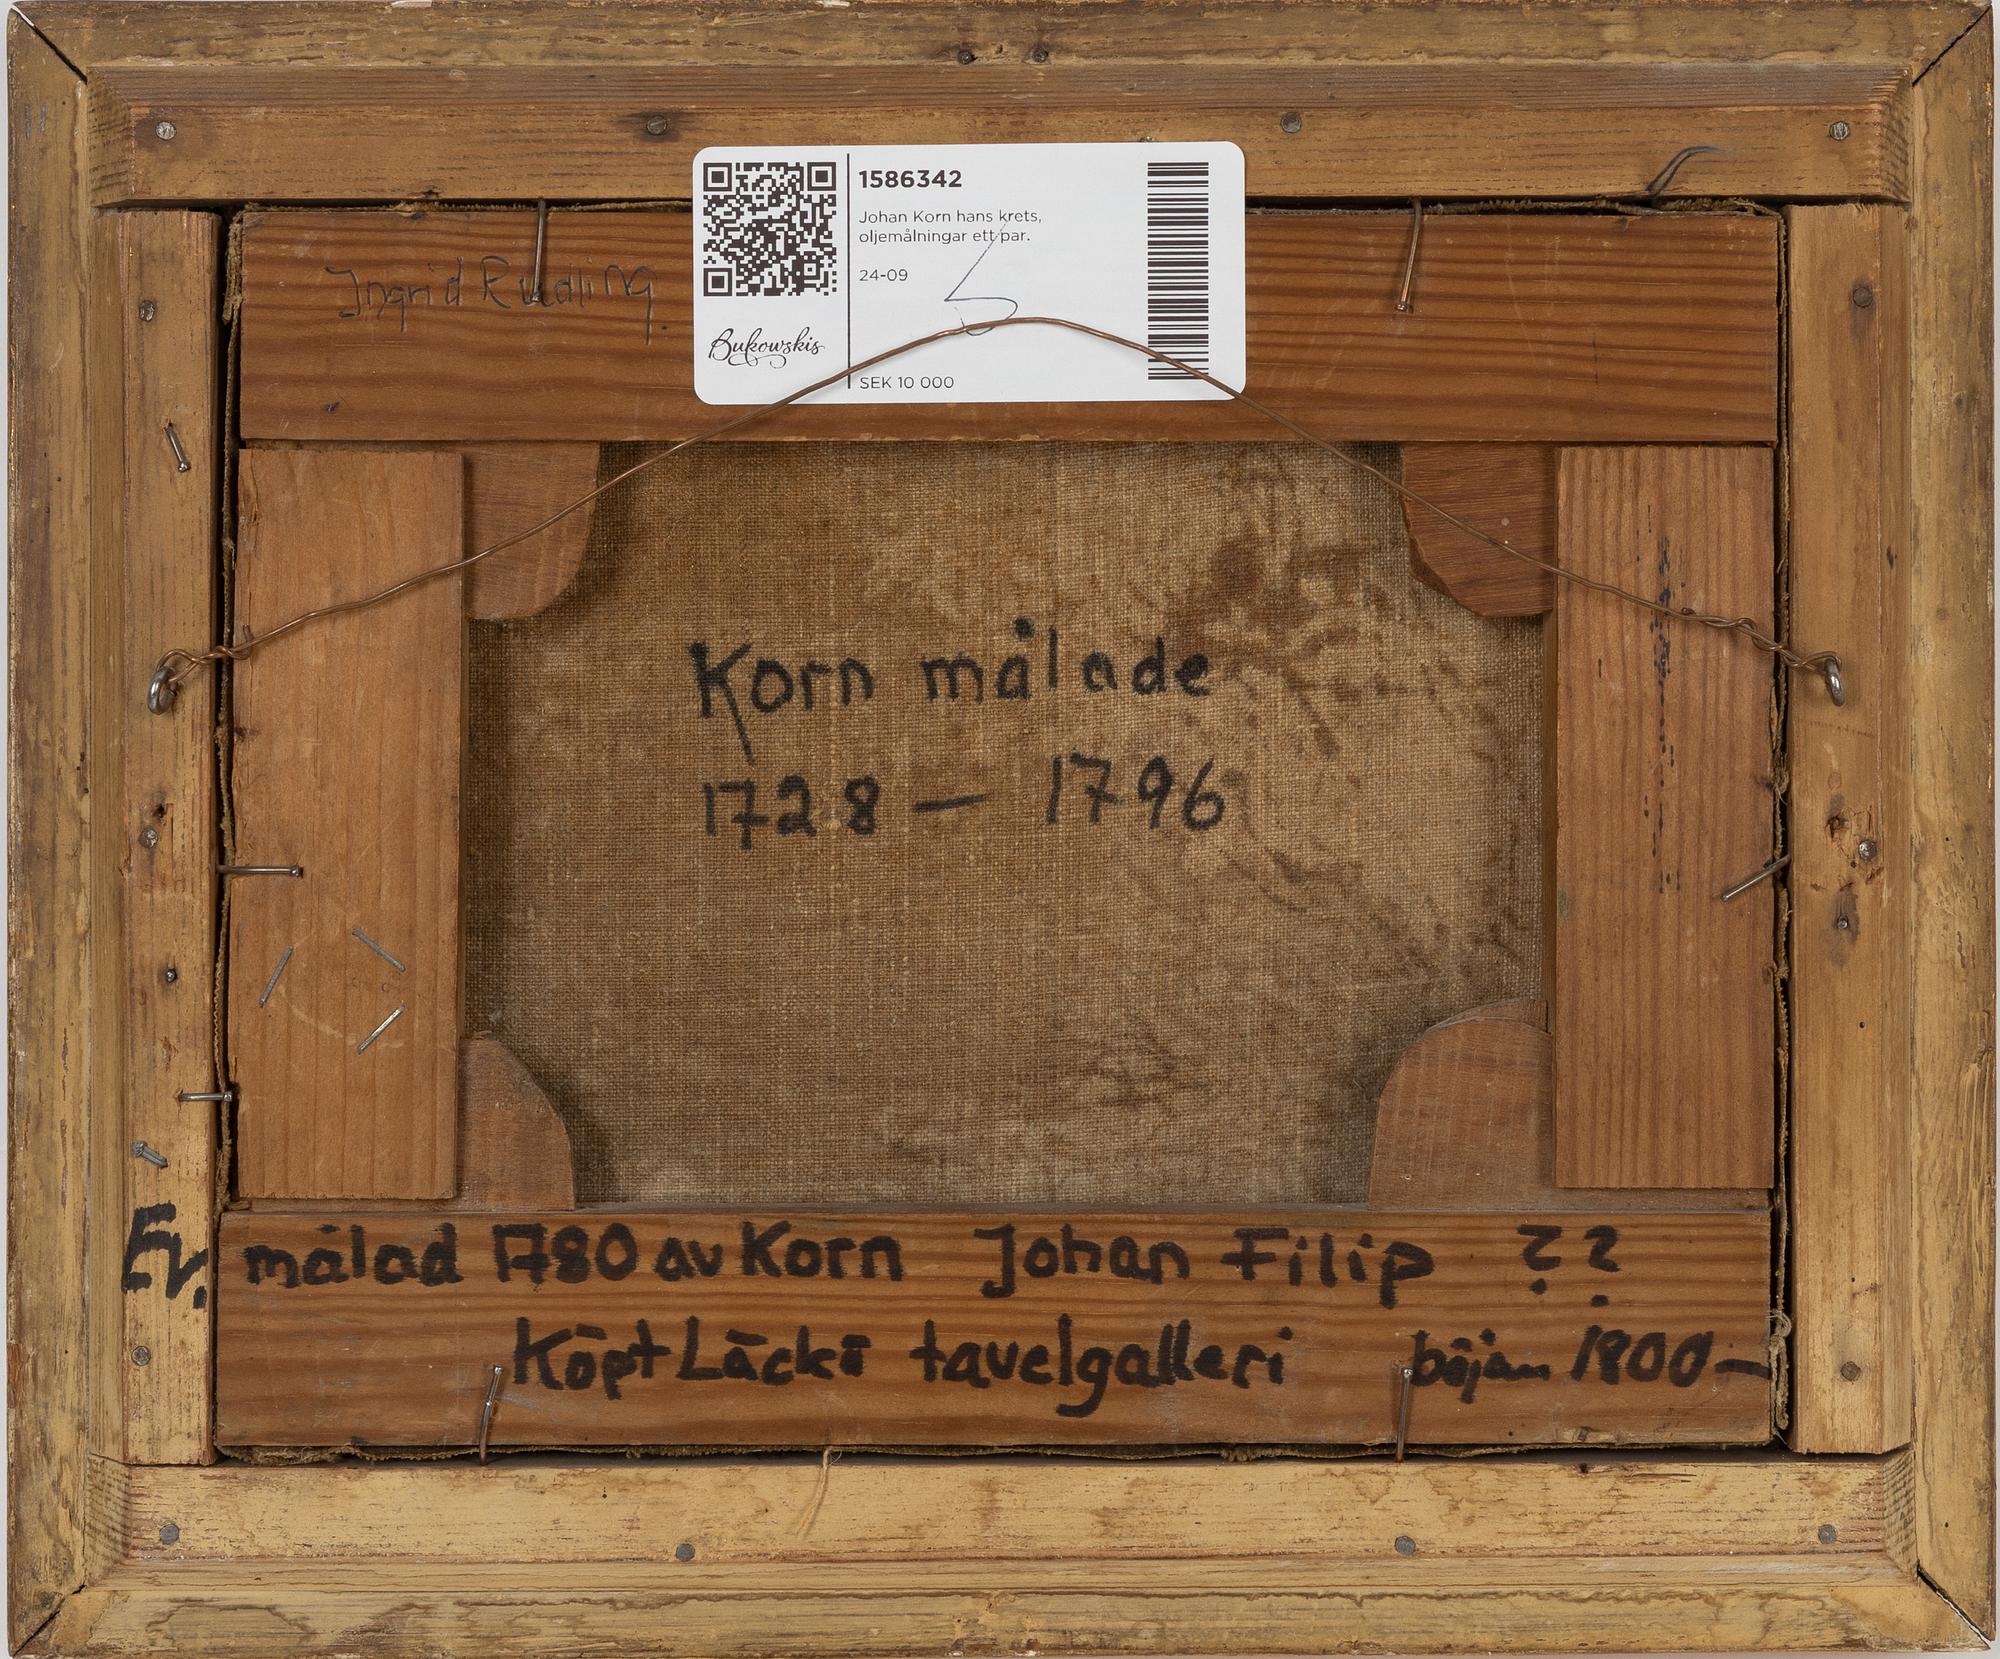 1586342
Johan Korn hans krets,
oljemålningar ett par.
24-09
5
Bukowskis
SEK 10 000
Ingrid Rudling.
Korn målade
1728 — 1796
Ev. målad 1780 av Korn Johan Filip ??
Köpt Läckö tavelgalleri början 1900—